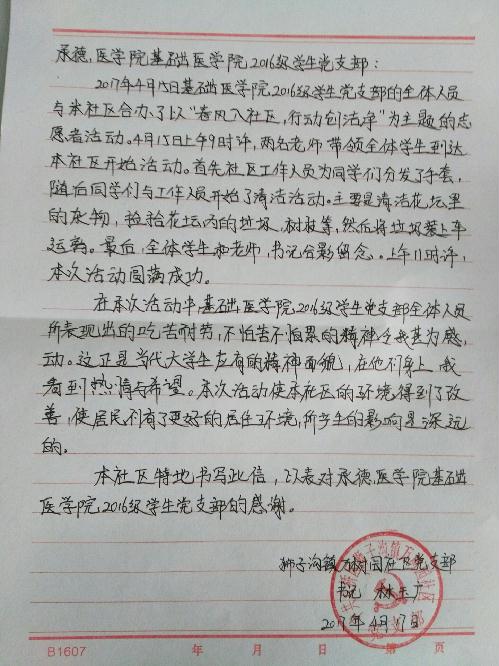 承德医学院基础医学院2016级学生党支部：
2017年4月15日基础医学院2016级学生党支部的全体人员
与本社区合办了以“春风入社区，行动创洁净”为主题的志
愿者活动。4月15日上午9时许，两名老师带领全体学生到达
本社区开始活动。首先社区工作人员为同学们分发了手套，
随后同学们与工作人员开始了清洁活动。主要是清洁花坛里
的灰物，捡拾花坛内的垃圾、树枝等，然后将垃圾装上车
运离。最后，全体学生和老师，书记合影留念。上午11时许，
本次活动圆满成功。
在本次活动中，基础医学院2016级学生党支部全体人员
所表现出的吃苦耐劳，不怕苦不怕累的精神令我甚为感
动。这正是当代大学生应有的精神面貌，在他们身上，我
看到热情与希望。本次活动使本社区的环境得到了改
善，使居民们有了更好的居住环境，所产生的影响是深远
的。
本社区特地书写此信，以表对承德医学院基础
医学院2016级学生党支部的感谢。
狮子沟镇万树园社区党支部
书记 林玉广
2017年4月17日
B1607 年 月 日 第 页